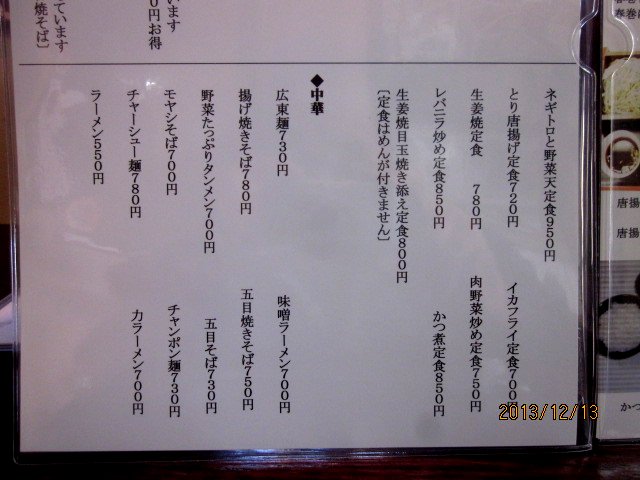 ています
焼そば〕
います
0円お得
ネギトロと野菜天定食950円
とり唐揚げ定食720円
イカフライ定食700円
生姜焼定食 780円
肉野菜炒め定食750円
レバニラ炒め定食850円
かつ煮定食850円
生姜焼目玉焼き添え定食800円
〔定食はめんが付きません〕
◆中華
広東麺730円
味噌ラーメン700円
揚げ焼きそば780円
五目焼きそば750円
野菜たっぷりタンメン700円
五目そば730円
モヤシそば700円
チャンポン麺730円
チャーシュー麺780円
力ラーメン700円
ラーメン550円
春巻は
唐揚
唐揚
かつ
2013/12/13